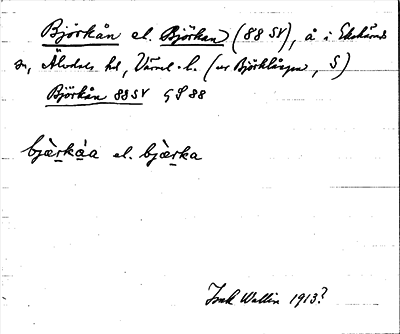 Björkån el. Björkan (88 SV), å i Ekshärads
sn, Älvdals hd, Värml. l. (ur Björklången, S)
Björkån 88 SV GS 88
bjæ̀rkàa el. bjæ̀rka
Isak Wallin 1913?